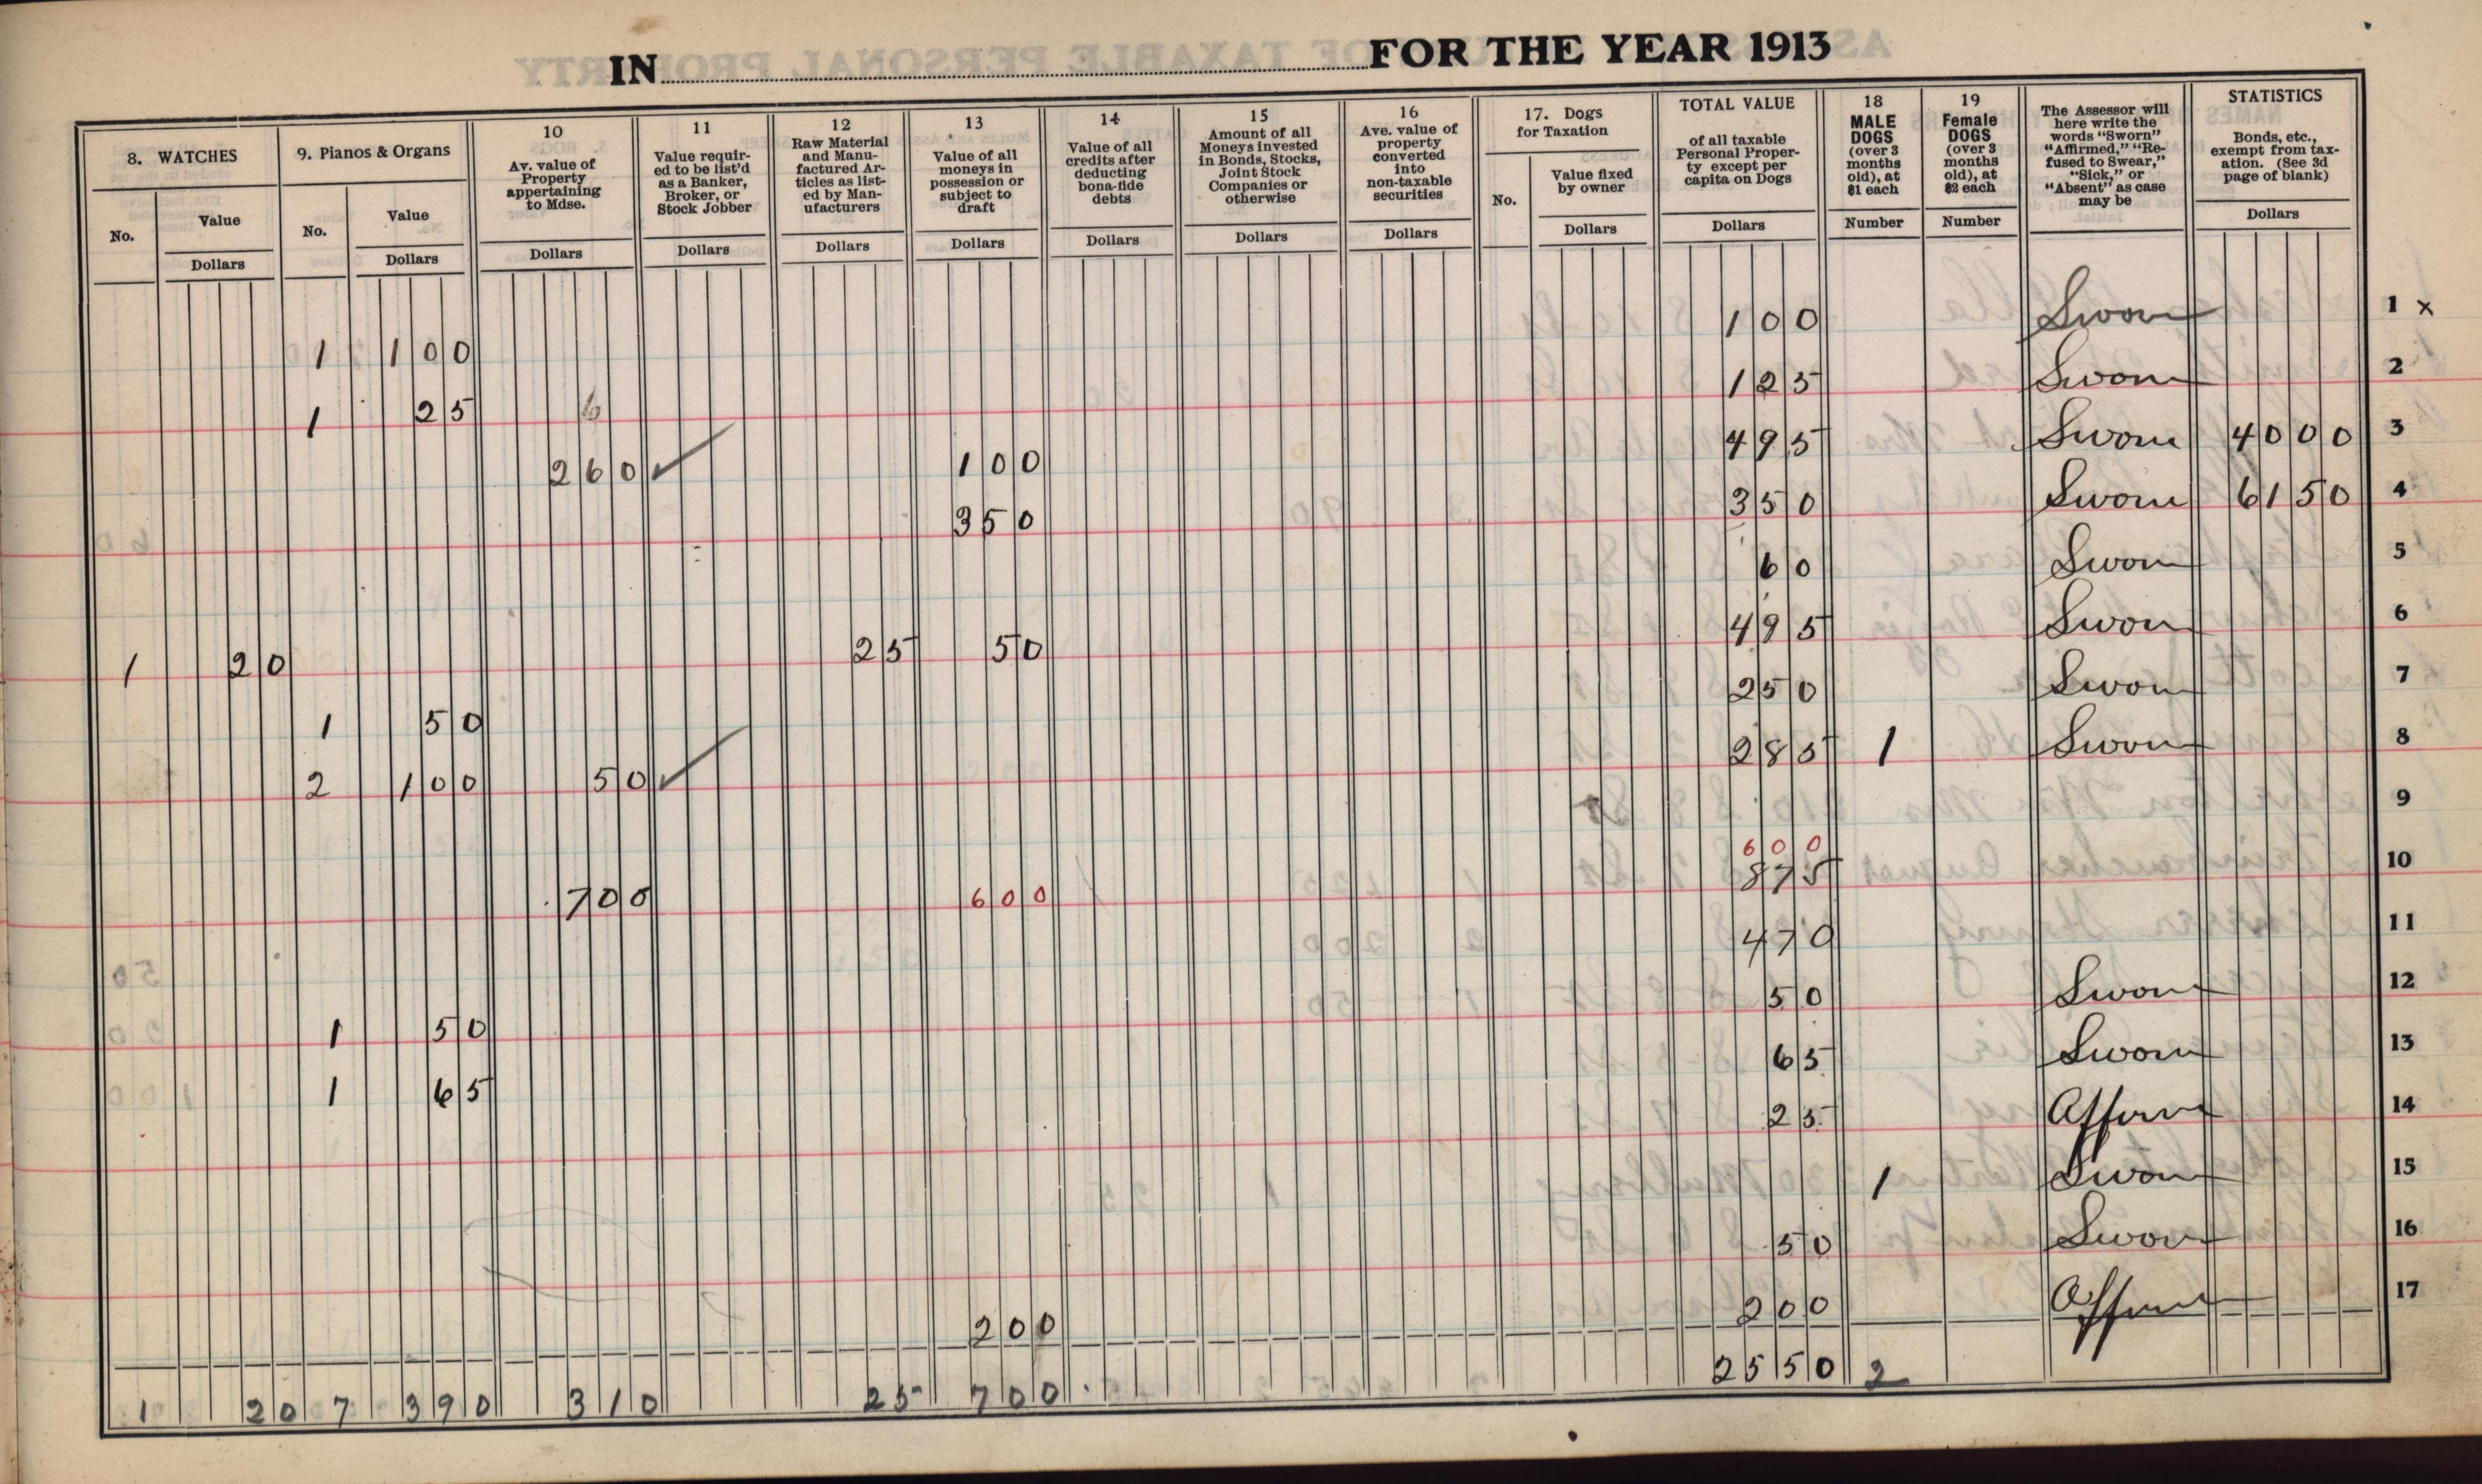 IN FOR THE YEAR 1913
8. WATCHES
No.
Value
Dollars
9. Pianos & Organs
No.
Value
Dollars
10
Av. value of
Property
appertaining
to Mdse.
Dollars
11
Value requir-
ed to be list'd
as a Banker,
Broker, or
Stock Jobber
Dollars
12
Raw Material
and Manu-
factured Ar-
ticles as list-
ed by Man-
ufacturers
Dollars
13
Value of all
moneys in
possession or
subject to
draft
Dollars
14
Value of all
credits after
deducting
bona-fide
debts
Dollars
15
Amount of all
Moneys invested
in Bonds, Stocks,
Joint Stock
Companies or
otherwise
Dollars
16
Ave. value of
property
converted
into
non-taxable
securities
Dollars
17. Dogs
for Taxation
No.
Value fixed
by owner
Dollars
TOTAL VALUE
of all taxable
Personal Proper-
ty except per
capita on Dogs
Dollars
18
MALE
DOGS
(over 3
months
old), at
$1 each
Number
19
Female
DOGS
(over 3
months
old), at
$2 each
Number
The Assessor will
here write the
words "Sworn"
"Affirmed," "Re-
fused to Swear,"
"Sick," or
"Absent" as case
may be
STATISTICS
Bonds, etc.,
exempt from tax-
ation. (See 3d
page of blank)
Dollars
1 100 100 Sworn 1 x
1 25 6 125 Sworn 2
260 ✓ 100 495 Sworn 4000 3
350 350 Sworn 6150 4
60 Sworn 5
1 20 25 50 495 Sworn 6
1 50 250 Sworn 7
2 100 50 ✓ 285 1 Sworn 8
9
600
700 600 875 10
470 11
1 50 50 Sworn 12
1 65 65 Sworn 13
25 Affirm 14
1 Sworn 15
50 Sworn 16
200 200 Affirm 17
1 20 7 390 310 25 700 2550 2